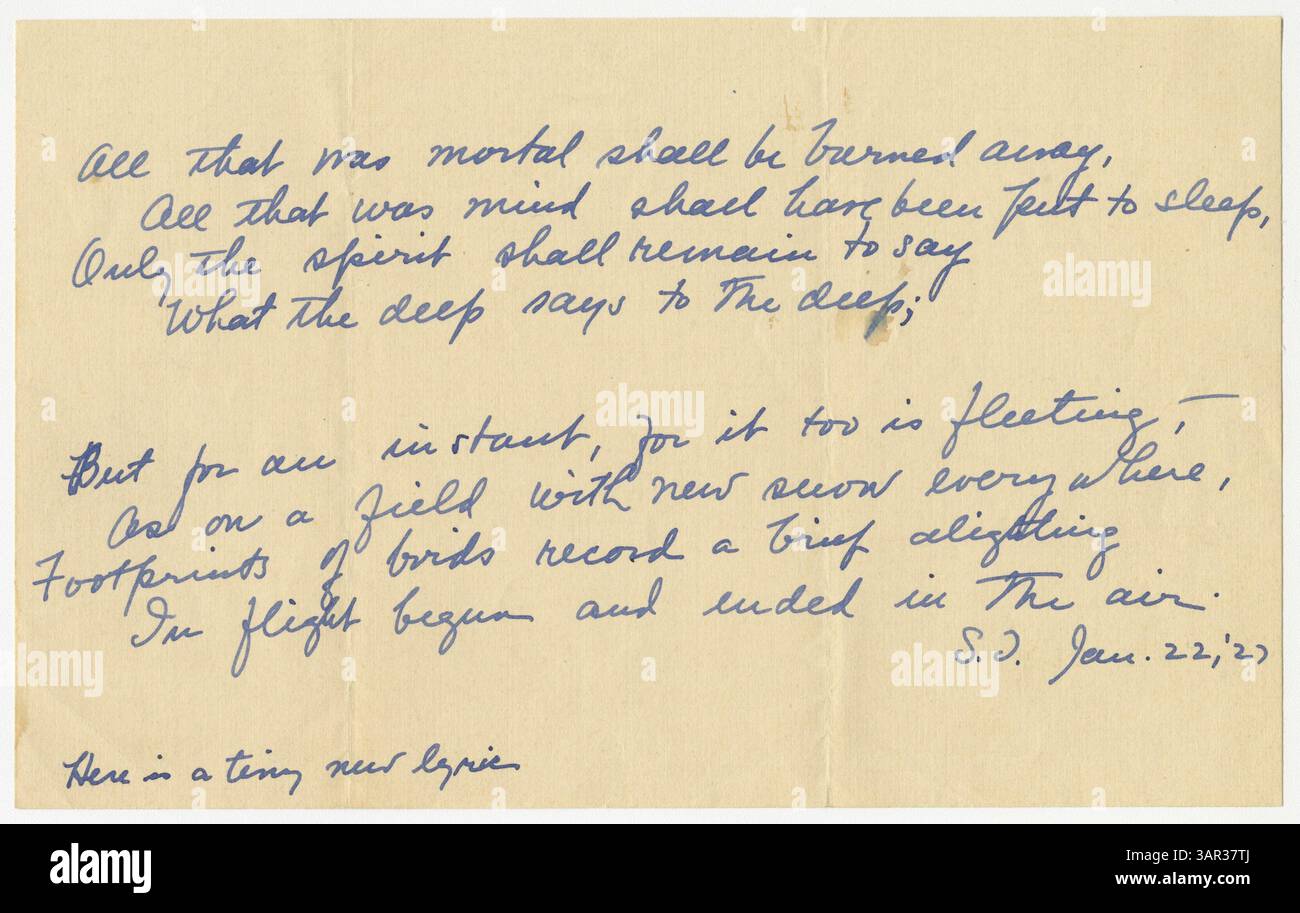 All that was mortal shall be burned away,
All that was mind shall have been put to sleep,
Only the spirit shall remain to say
What the deep says to the deep;
But for an instant, for it too is fleeting, —
As on a field with new snow everywhere,
Footprints of birds record a brief alighting
In flight begun and ended in the air.
S.T. Jan. 22, '27
Here is a tiny new lyric
alamy
Image ID: 3AR37TJ
www.alamy.com